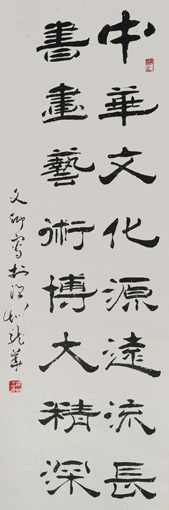 中華文化源遠流長
書畫藝術博大精深